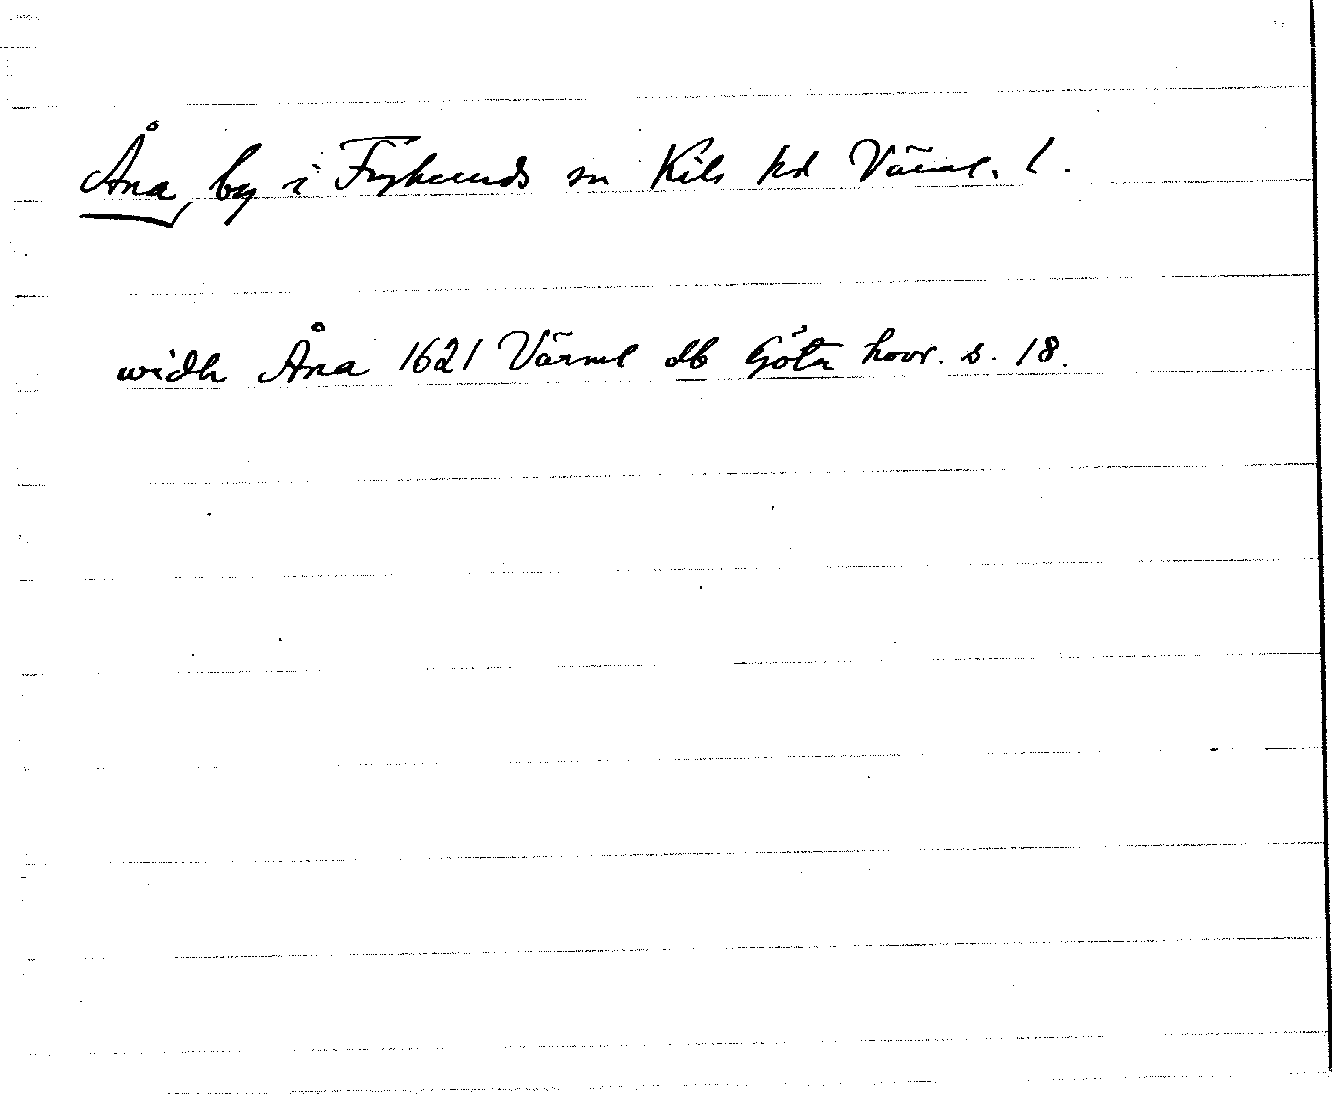 Åna, by i Frykeruds sn Kils hd Värml. l.
widh Åna 1621 Värml db Göta hovr. s. 18.